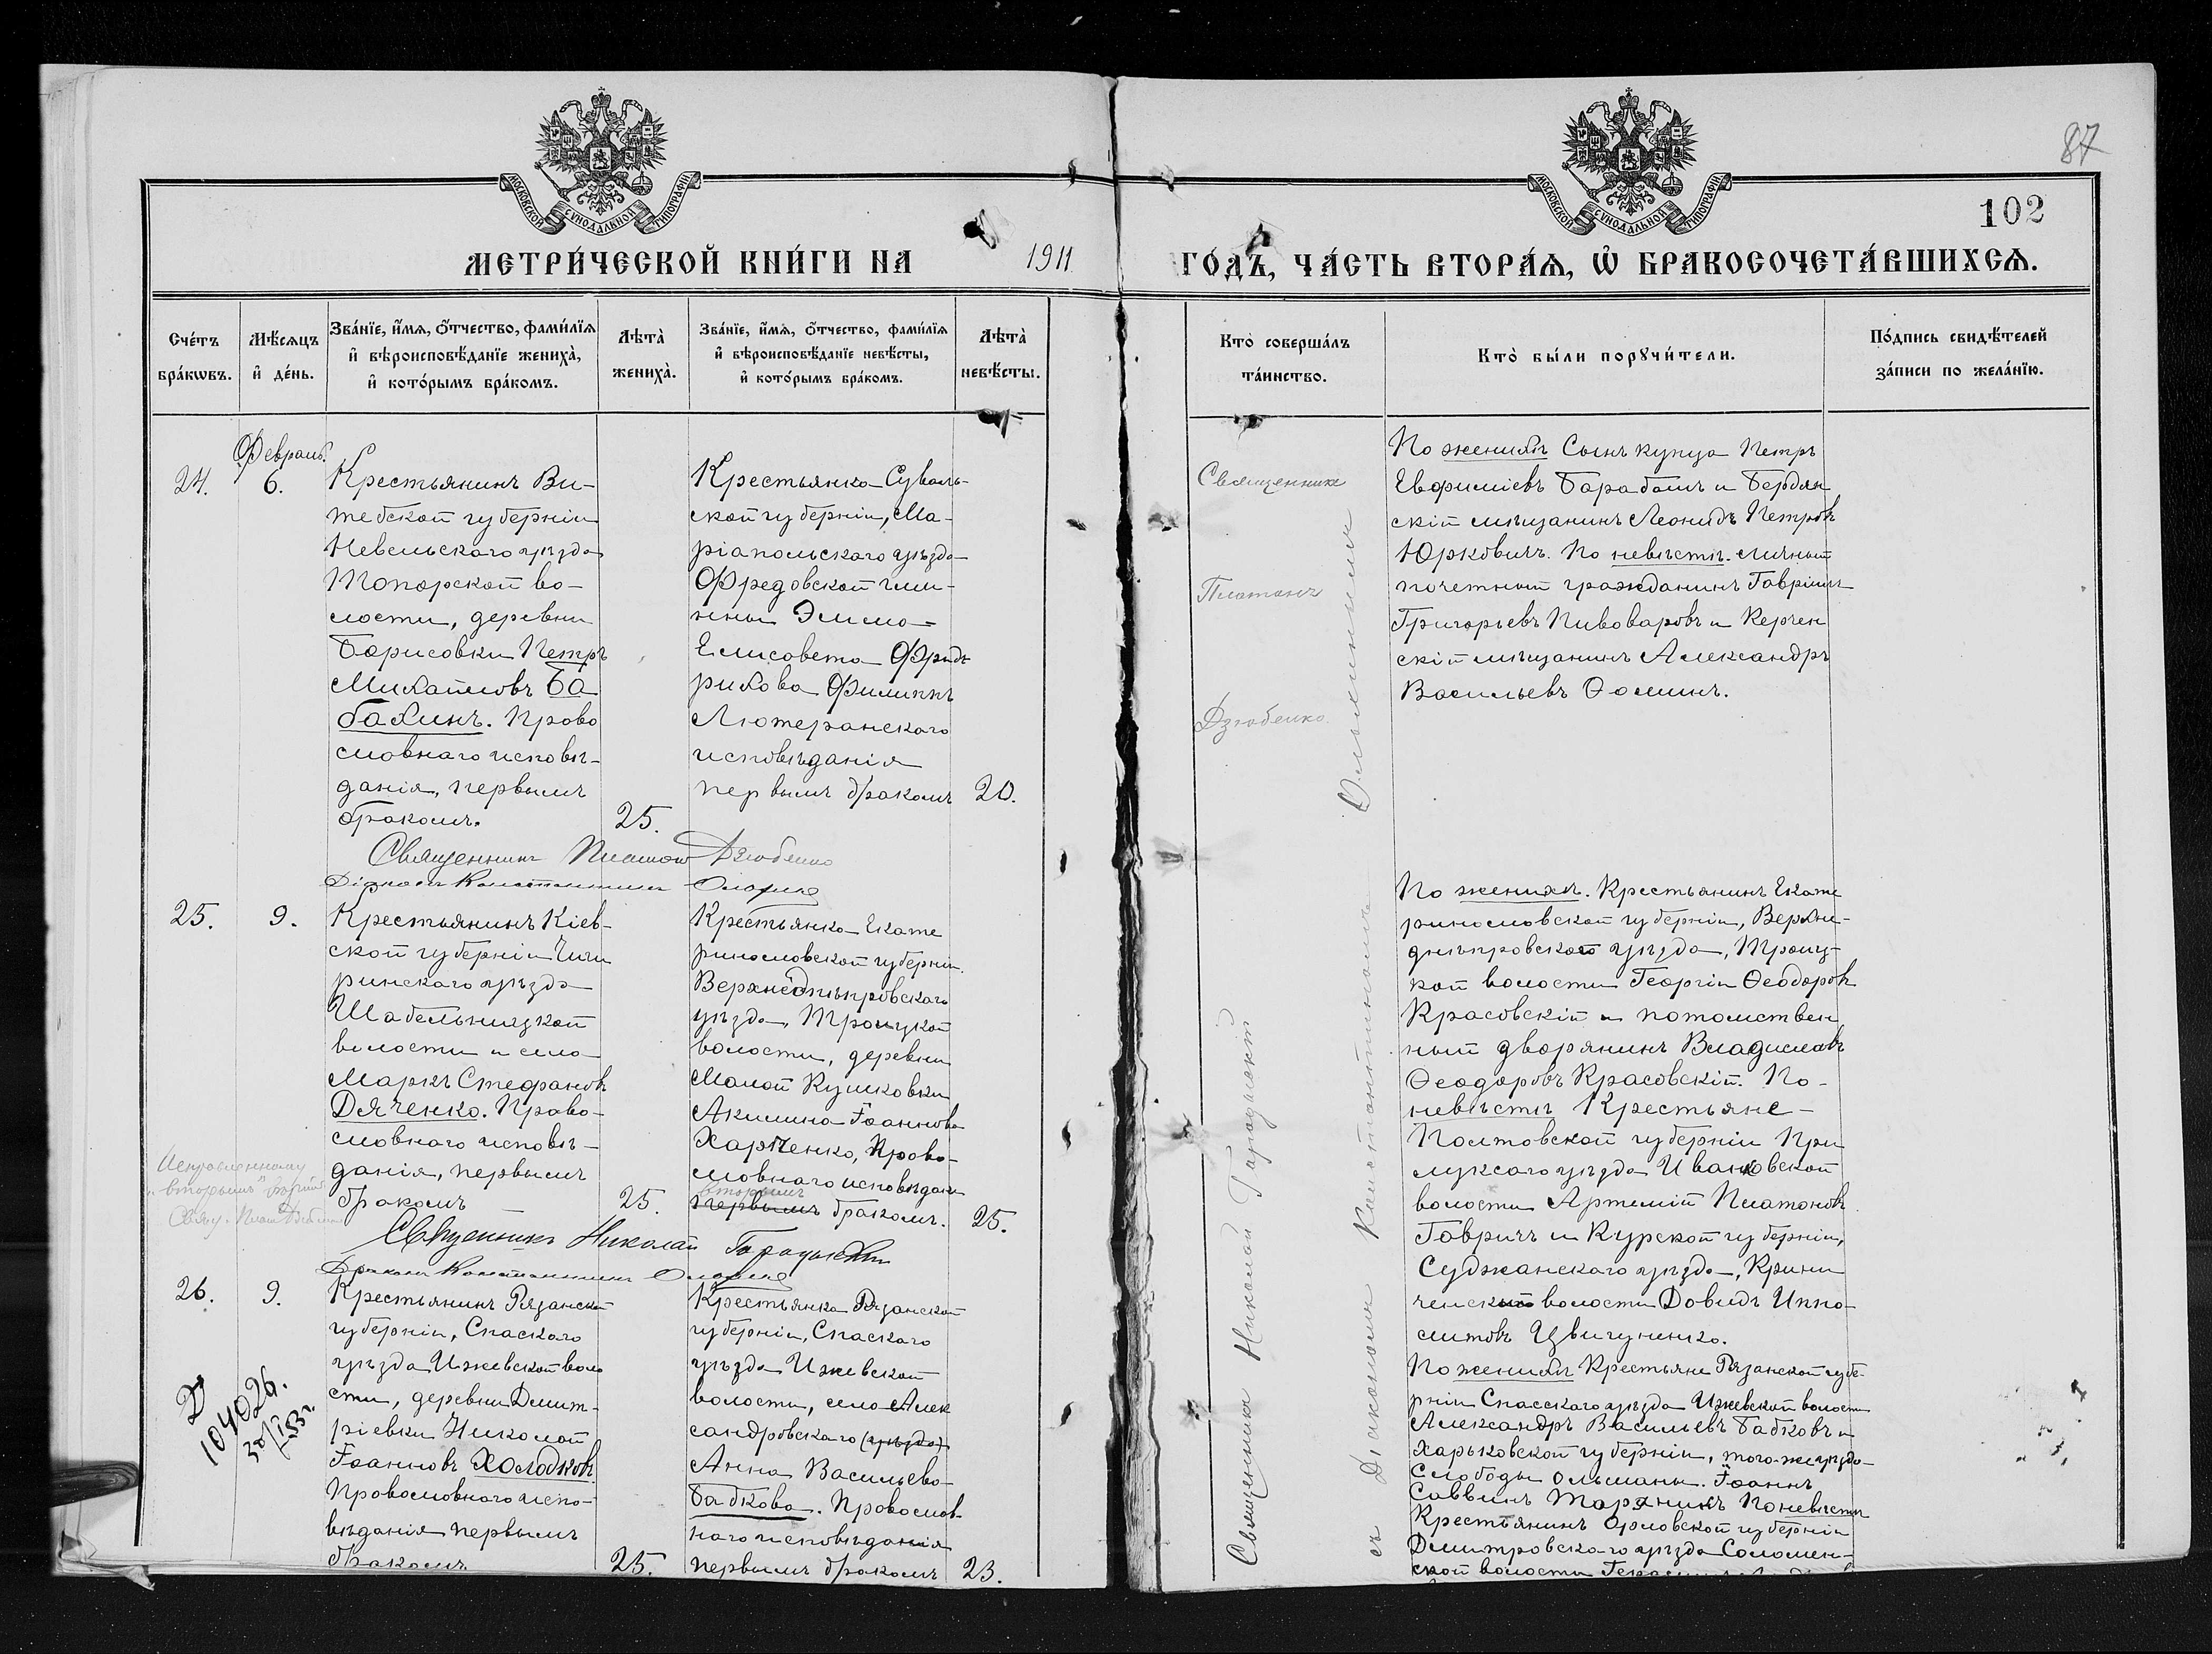 МОСКОВСКОЙ СУНОДАЛЬНОЙ ТИПОГРАФІИ
МЕТРИ́ЧЕСКОЙ КНИ́ГИ НА 1911
Сче́тъ бра́кωвъ.
Мѣ́сяцъ и҆ де́нь.
Зва́нїе, и҆́мѧ, ѻ҆́тчество, фами́лїѧ
и҆ вѣроисповѣ́данїе жениха̀,
и҆ кото́рымъ бра́комъ.
Лѣта̀ жениха̀.
Зва́нїе, и҆́мѧ, ѻ҆́тчество, фами́лїѧ
и҆ вѣроисповѣ́данїе невѣ́сты,
и҆ кото́рымъ бра́комъ.
Лѣта̀ невѣ́сты.
24.
Февраль.
6.
Крестьянинъ Ви-
тебской губерніи
Невельскаго уѣзда
Топорской во-
лости, деревни
Борисовки Петръ
Михайловъ Ба
бахинъ. Право
славнаго исповѣ-
данія, первымъ
бракомъ.
25.
Крестьянка Суваль-
ской губерніи, Ма-
ріапольскаго уѣзда
Фредовской гми-
ны Эмма-
Елисавета Фриде
рихова Филиппъ
Лютеранскаго
исповѣданія
первымъ бракомъ
20.
Священникъ Платонъ Дзюбенко
Діаконъ Константинъ
25.
9.
Крестьянинъ Кіев-
ской губерніи Чиги
ринскаго уѣзда
Шабельницкой
волости и села
Маркъ Стефановъ
Дяченко. Право-
славнаго исповѣ-
данія, первымъ
бракомъ
25.
Крестьянка Екате
ринославской губерніи
Верхнеднѣпровскаго
уѣзда, Троицкой
волости, деревни
Малой Кушковки
Акилина Іоаннова
Харченко, Право-
славнаго исповѣдані
вторымъ
первымъ бракомъ.
25.
Исправленному
"вторымъ" вѣрить
Свящ. Плат. Дзюбенко
Священникъ Николай Городыскій
Діаконъ Константинъ
26.
9.
Крестьянинъ Рязанской
губерніи, Спаскаго
уѣзда Ижевской воло
сти, деревни Димит-
ріевки Николай
Іоанновъ Холодковъ.
Православнаго испо-
вѣданія первымъ
бракомъ.
25.
Крестьянка Рязанской
губерніи, Спаскаго
уѣзда Ижевской
волости, села Алек
сандровскаго (уѣзда)
Анна Васильева
Бабкова. Православ-
наго исповѣданія
первымъ бракомъ
23.
87
102
МОСКОВСКОЙ СУНОДАЛЬНОЙ ТИПОГРАФІИ
ГО́ДЪ, ЧА́СТЬ ВТОРА́Ѧ, Ѡ҆ БРАКОСОЧЕТА́ВШИХСѦ.
Кто̀ соверша́лъ та́инство.
Кто̀ бы́ли порꙋчи́тели.
По́дпись свидѣ́телей
за́писи по жела́нїю.
Священникъ
Платонъ
Дзюбенко.
Священникъ Николай Городыскій
съ Діакономъ Константиномъ
По женихѣ Сынъ купца Петръ
Евфиміевъ Барабашъ и Бердян
скій мѣщанинъ Леонидъ Петровъ
Юрковичъ. По невѣстѣ. личный
почетный гражданинъ Гавріилъ
Григорьевъ Пивоваровъ и Керчен
скій мѣщанинъ Александръ
Васильевъ Ѳоминъ.
По женихѣ. Крестьянинъ Екате
ринославской губерніи, Верхне-
днѣпровскаго уѣзда, Троиц-
кой волости Георгій Ѳеодоровъ
Красовскій и потомствен
ный дворянинъ Владиславъ
Ѳеодоровъ Красовскій. По-
невѣстѣ Крестьяне-
Полтавской губерніи При
лукскаго уѣзда Иванковской
волости Артемій Платоновъ
Гавричъ и Курской губерніи,
Суджанскаго уѣзда, Крини
ченской волости Давидъ Иппо-
литовъ Цвигуненко.
По женихѣ Крестьяне Рязанской губе-
рніи Спасскаго уѣзда Ижевской волости
Александръ Васильевъ Бабковъ и
Харьковской губерніи, того-же уѣзда
Слободы Ольшаны. Іоаннъ
Саввинъ Таряникъ По невѣстѣ
Крестьянинъ Орловской губерніи
Димитровскаго уѣзда Соломен-
ской волости